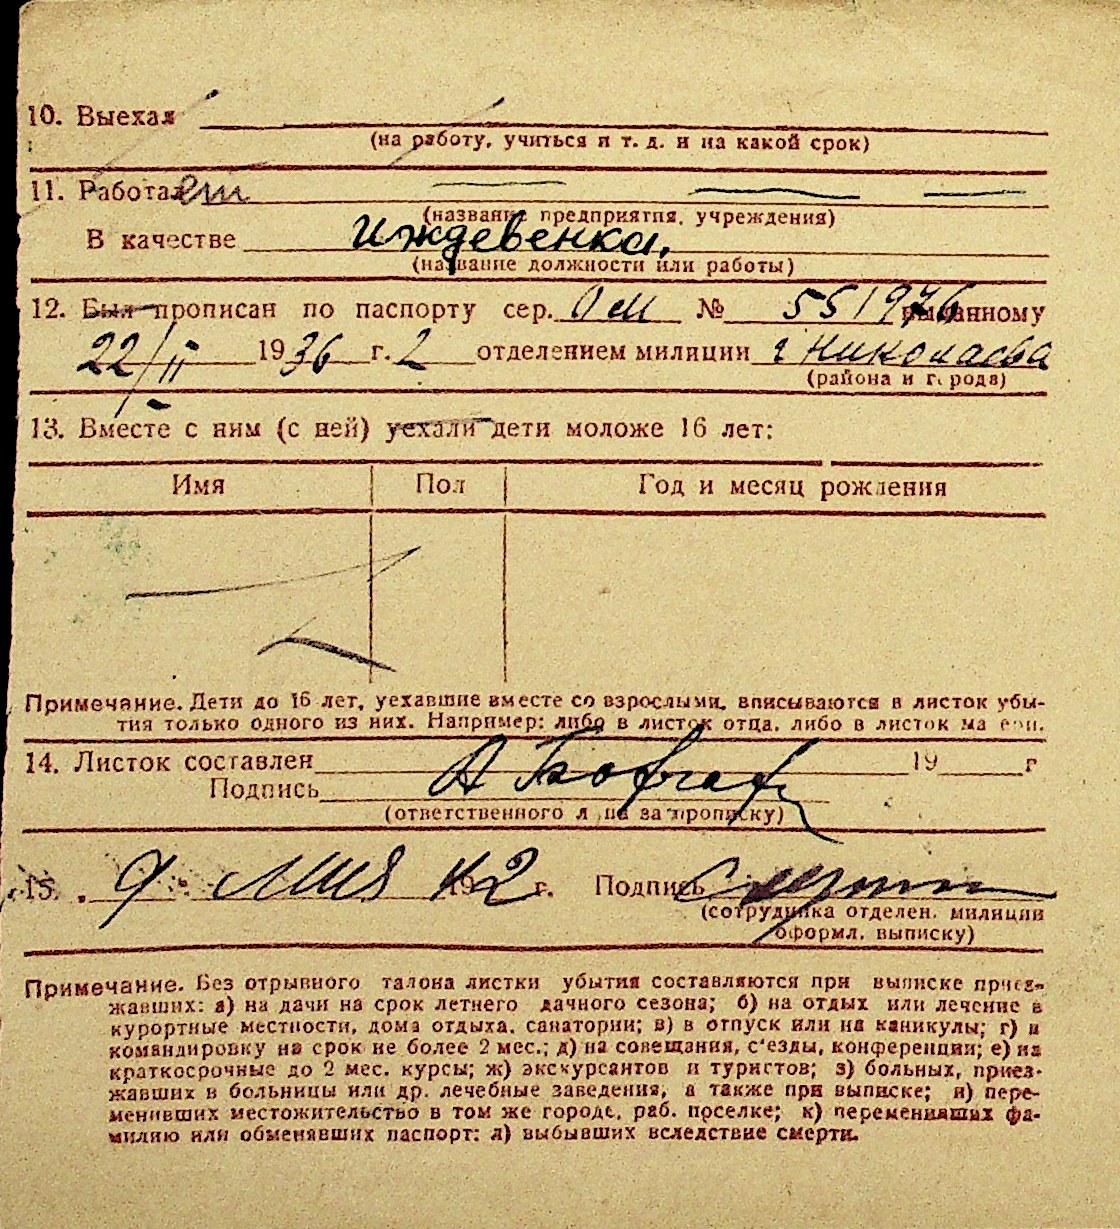 10. Выехал
(на работу, учиться и т. д. и на какой срок)
11. Работает — — —
(название предприятия, учреждения)
В качестве иждевенка.
(название должности или работы)
12. Был прописан по паспорту сер. № 551976 выданному
22/II 1936 г. 2 отделением милиции г Николаева
(района и города)
13. Вместе с ним (с ней) уехали дети моложе 16 лет:
Имя Пол Год и месяц рождения
Примечание. Дети до 16 лет, уехавшие вместе со взрослыми, вписываются в листок убы-
тия только одного из них. Например: либо в листок отца, либо в листок матери.
14. Листок составлен 19 г
Подпись
(ответственного лица за прописку)
15. 9 мая 1942 г. Подпись
(сотрудника отделен. милиции
оформл. выписку)
Примечание. Без отрывного талона листки убытия составляются при выписке приез-
жавших: а) на дачи на срок летнего дачного сезона; б) на отдых или лечение в
курортные местности, дома отдыха, санатории; в) в отпуск или на каникулы; г) в
командировку на срок не более 2 мес.; д) на совещания, с'езды, конференции; е) на
краткосрочные до 2 мес. курсы; ж) экскурсантов и туристов; з) больных, приез-
жавших в больницы или др. лечебные заведения, а также при выписке; и) пере-
менивших местожительство в том же городе, раб. поселке; к) переменивших фа-
милию или обменявших паспорт; л) выбывших вследствие смерти.